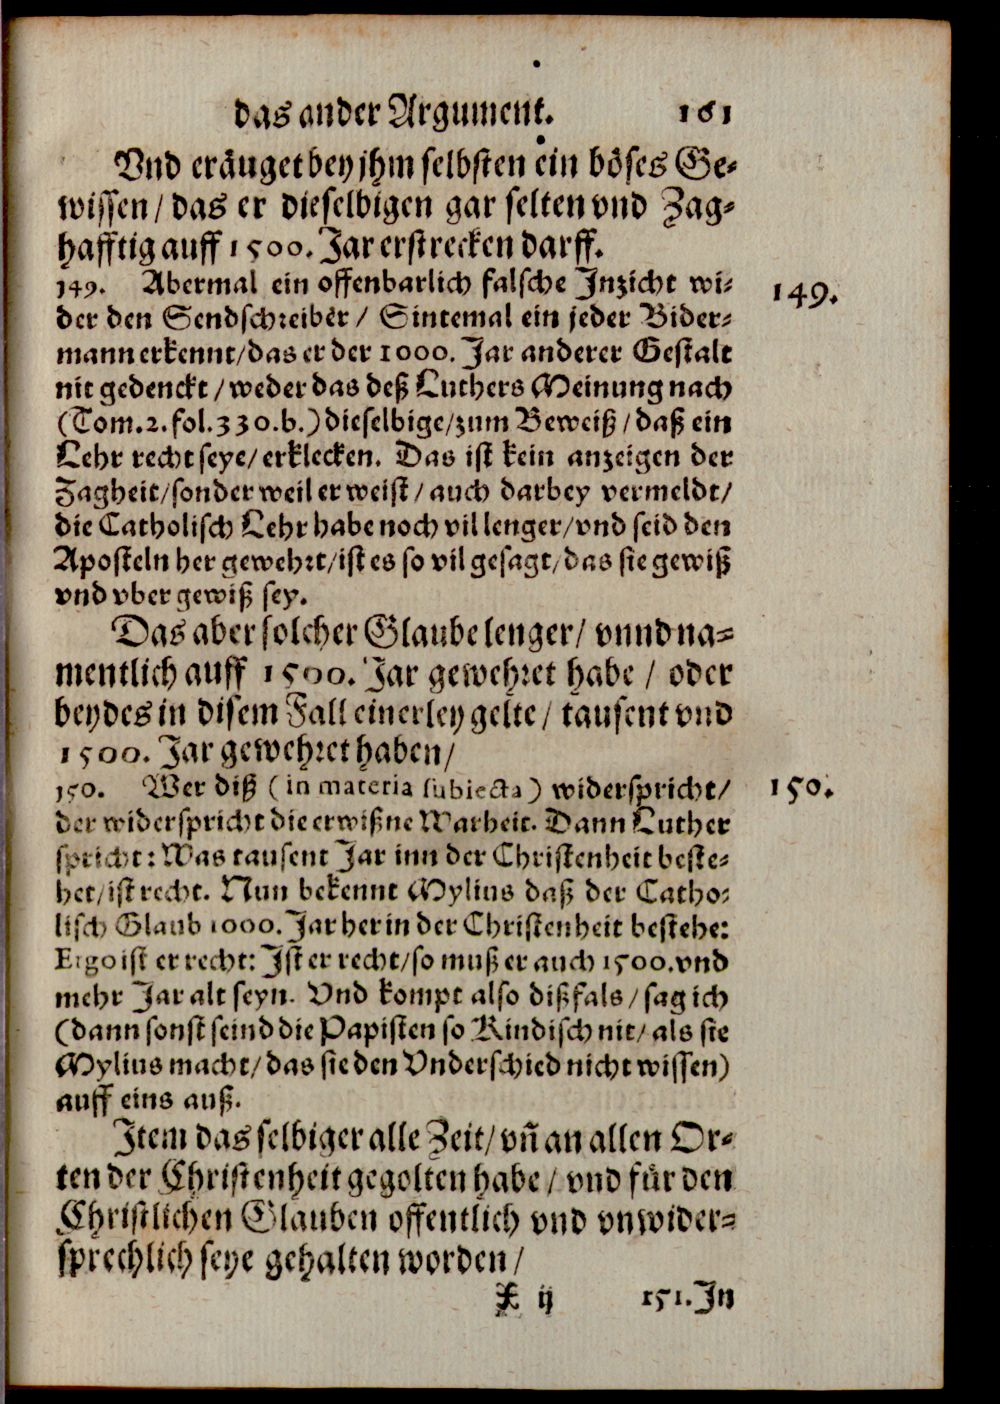 das ander Argument. 161
Vnd eräuget bey jhm selbsten ein böses Ge⸗
wissen / das er dieselbigen gar selten vnd Zag⸗
hafftig auff 1500. Jar erstrecken darff.
149. Abermal ein offenbarlich falsche Inzicht wi⸗
der den Sendschreiber / Sintemal ein jeder Bider⸗
mann erkennt/das er der 1000. Jar anderer Gestalt
nit gedenckt / weder das deß Luthers Meinung nach
(Tom.2.fol.330.b.) dieselbige/zum Beweiß / daß ein
Lehr recht seye/ erklecken. Das ist kein anzeigen der
Zagheit/sonder weil er weist / auch darbey vermeldt/
die Catholisch Lehr habe noch vil lenger/vnd seid den
Aposteln her gewehrt/ist es so vil gesagt/das sie gewiß
vnd vber gewiß sey.
149.
Das aber solcher Glaube lenger/ vnnd na⸗
mentlich auff 1500. Jar gewehret habe / oder
beydes in disem Fall einerley gelte / tausent vnd
1500. Jar gewehret haben/
150. Wer diß ( in materia subiecta ) widerspricht/
der widerspricht die erwißne Warheit. Dann Luther
spricht: Was tausent Jar inn der Christenheit beste⸗
het/ist recht. Nun bekennt Mylius daß der Catho⸗
lisch Glaub 1000. Jar her in der Christenheit bestehe:
Ergo ist er recht: Ist er recht/so muß er auch 1500.vnd
mehr Jar alt seyn. Vnd kompt also dißfals / sag ich
(dann sonst seind die Papisten so Kindisch nit/ als sie
Mylius macht/ das sie den Vnderschied nicht wissen)
auff eins auß.
150.
Item das selbiger alle Zeit/ vñ an allen Or⸗
ten der Christenheit gegolten habe / vnd für den
Christlichen Glauben offentlich vnd vnwider⸗
sprechlich seye gehalten worden /
X ij 151.In